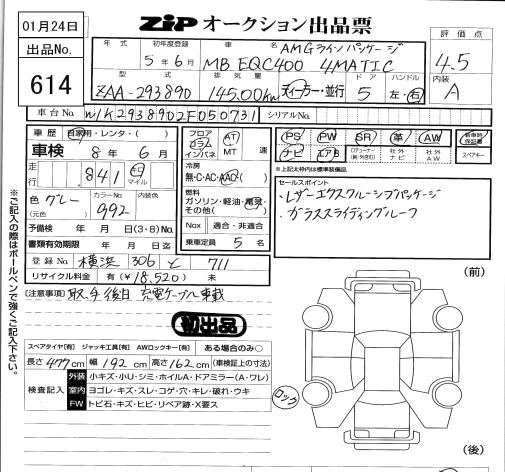 01月24日
出品No.
614
ZIP オークション出品票
評価点
4.5
内装
A
年式 初年度登録 車名
5年6月 MB EQC400 4MATIC
AMGラインパッケージ
型式 排気量 ドア ハンドル
ZAA-293890 145.00kw ディーラー・並行 5 左・右
車台No. W1K2938902F050731 シリアルNo.
車歴 自家用・レンタ・( )
車検 8年6月
走行 841 キロ マイル
色 グレー (元色) カラーNo. 992 内装色
予備検 年 月 日(3・8)No.
書類有効期限 年 月 日迄
登録No. 横浜 306 と 711
リサイクル料金 有(¥18,520) 未
フロア コラム インパネ AT MT 速
冷房 無・C・AC・AAC
燃料 ガソリン・軽油・電気・その他( )
Nox 適合・非適合
乗車定員 5 名
PS PW SR 革 AW 新車時保証書
ナビ エアB 社外ナビ 社外AW スペアキー
※上記太枠内は標準装備
セールスポイント
・レザーエクスクルーシブパッケージ
・ガラススライディングルーフ
(注意事項) 取、手後日 充電ケーブル車載
初出品
スペアタイヤ[有] ジャッキ工具[有] AWロックキー[有] ある場合のみ○
長さ 477cm 幅 192cm 高さ 162cm (車検証上の寸法)
検査記入
外装 小キズ・小U・シミ・ホイルA・ドアミラー(A・ワレ)
室内 ヨゴレ・キズ・スレ・コゲ・穴・キレ・破れ・ウキ
FW トビ石・キズ・ヒビ・リペア跡・X要ス
ロック
(前)
(後)
※ご記入の際はボールペンで強くご記入下さい。